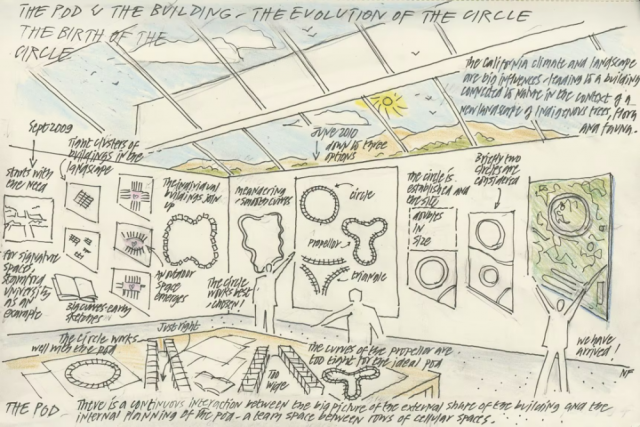 THE POD & THE BUILDING - THE EVOLUTION OF THE CIRCLE
THE BIRTH OF THE
CIRCLE
The California climate and landscape
are big influences leading to a building
connected to nature in the context of a
new landscape of indigenous trees, flora
and fauna.
Sept 2009
starts with
the need
for signature
spaces,
Stanford
University
as an
example
Tight clusters of
buildings in the
landscape
an outdoor
space
emerges
early
sketches
The individual
buildings join
up
Meandering
smoother curves
The circle
works best
chosen!
June 2010
down to three
options
circle
propellor
triangle
The circle is
established and
the site
doubles
in
size
Briefly two
circles are
considered
we have
arrived!
NF
The circle works
well with the pod
Just right
Too
wide
The curves of the propellor are
too tight for the ideal pod
THE POD - There is a continuous interaction between the big picture of the external shape of the building and the
internal planning of the pod - a team space between rows of cellular spaces.